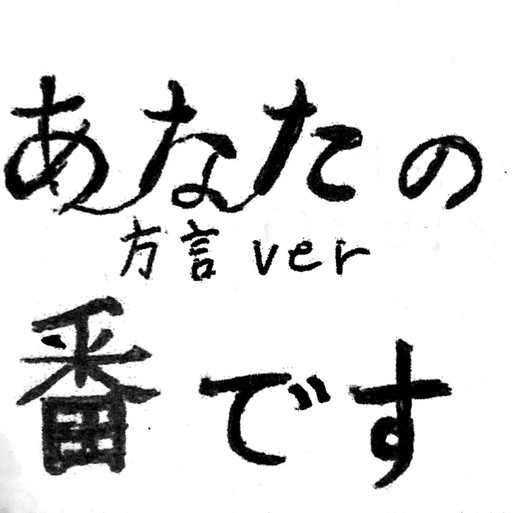 あなたの
方言 ver
番です